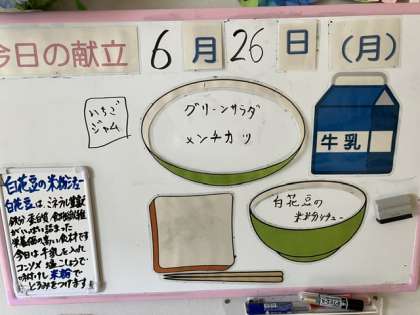 今日の献立 6月26日(月)
いちご
ジャム
グリーンサラダ
メンチカツ
牛乳
白花豆の
米粉シチュー
白花豆の米粉シチュー
白花豆は、
鉄分 蛋白質 食物繊維
がいっぱい詰まった
栄養価の高い食材です
今日は牛乳を入れ
コンソメ 塩こしょうで
味付けし 米粉で
とろみをつけます